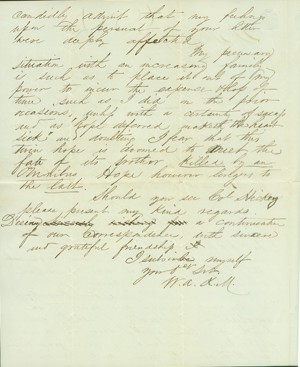 candidly admit that my feelings
upon the perusal of your letter
were deeply affected.
My pecuniary
situation with an increasing family
is such as to place it out of my
power to incur the expense & loss of
time such as I did on the prior
occasions, only with a certainty of
and as "hope deferred maketh the heart
sick" and doubtless I fear that this
hope is doomed to meet the
fate of its brother killed by an
Omnibus. Hope however lingers to
the last.
Should you see Col Hickey
please present my kind regards.
Desiring a continuation
of our correspondence, with sincere
and grateful friendship
I subscribe myself
your Obt Svt
W. A. K. M